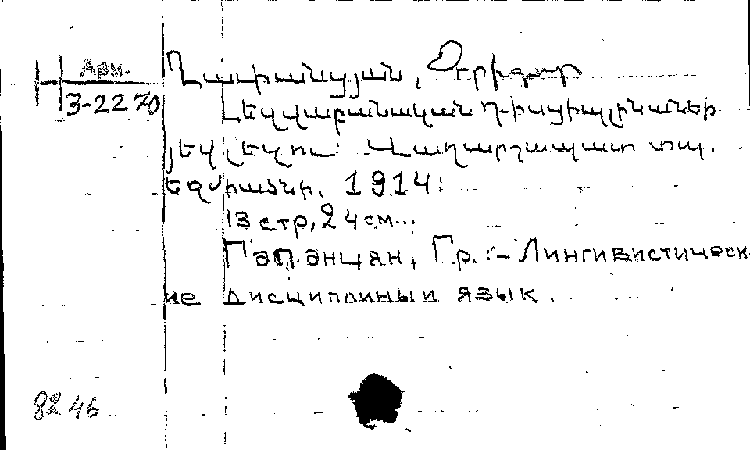 Арм.
З-2270
Ղափանցյան, Գրիգոր
Լեզվաբանական դիսցիպլինաներ
յեվ լեզու Վաղարշապատ տպ.
Եջմիածնի. 1914.
13 стр, 24 см...
Гапанцян, Гр. :- Лингивистическ
ие дисциплины и язык.
8246